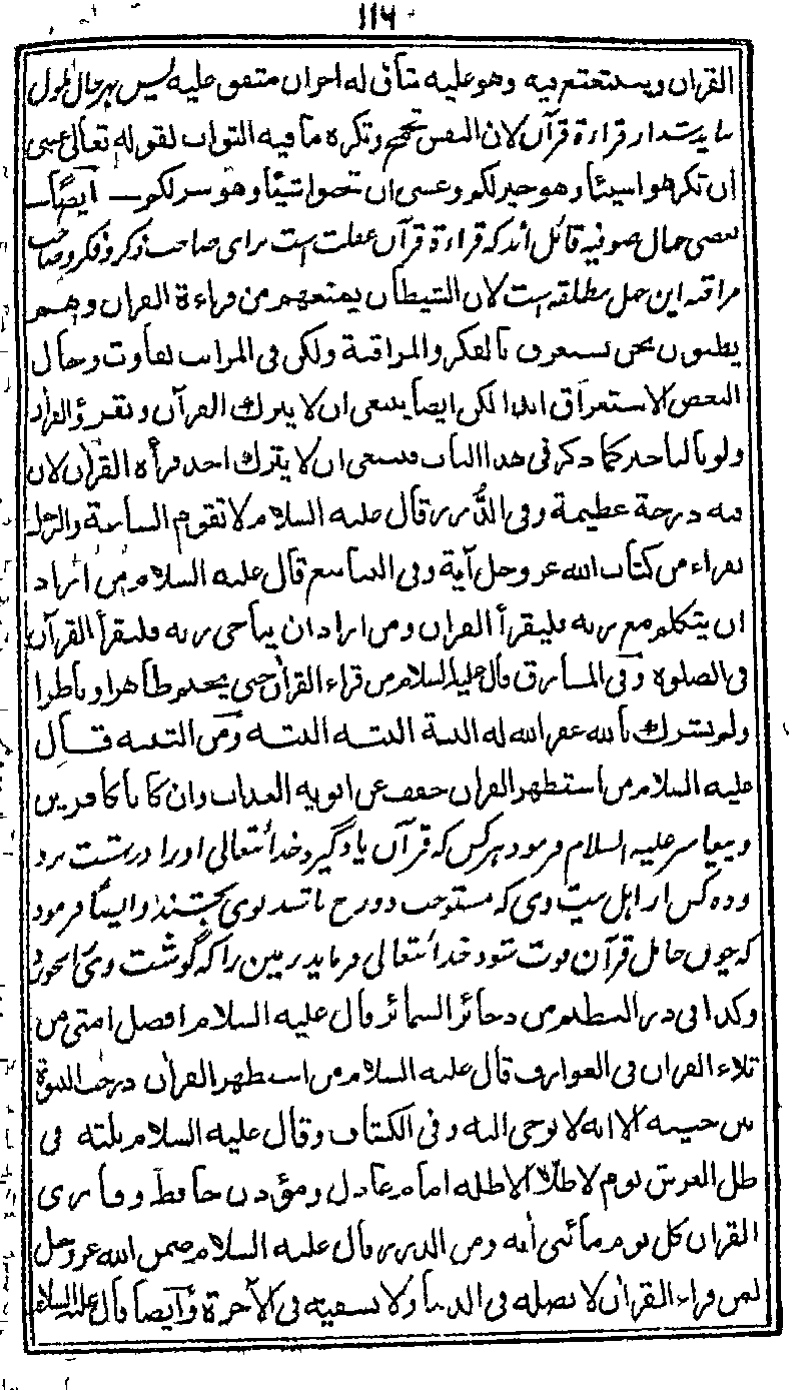 ۱۱۶
القران ويستعتع فيه وهو عليه شاق له اجران متفق عليه ليس بهر حال طول
بايد شد از قراءة قرآن لان النفس تحجم وتكره ما فيه الثواب لقوله تعالى عسى
ان تكرهوا شيئا وهو خير لكم وعسى ان تحبوا شيئا وهو شر لكم ايضا
بعضى جهال صوفيه قائل اند كه قراءة قرآن غفلت است براى صاحب ذكر و فكر و صاحب
مراقبه اين جهل مطلقه است لان الشيطان يمنعهم من قراءة القران وهم
يظنون نحن نستغرق بالفكر والمراقبة ولكن في المراتب تفاوت وحال
البعض الاستغراق ابدا لكن ايضا ينبغى ان لا يترك القرآن ويقرؤ القران
ولو بالتاخير كما ذكر في هذا الباب فينبغى ان لا يترك احد قرأة القران لان
فيه درجة عظيمة وفى الدرر قال عليه السلام لا تقوم الساعة والرجل
يقراء من كتاب الله عز وجل آية وفى الينابيع قال عليه السلام من اراد
ان يتكلم مع ربه فليقرأ القران ومن اراد ان يناجى ربه فليقرأ القرآن
فى الصلوة وفى المشارق قال عليه السلام من قراء القران حتى يختم ظاهرا وناظرا
ولم يشرك بالله غفر الله له البتة البتة البتة ومن التنبيه قال
عليه السلام من استظهر القران خفف عن ابويه العذاب وان كانا كافرين
وپيغامبر عليه السلام فرمود هر كس كه قرآن ياد گيرد خدائتعالى اورا در بهشت برد
وده كس از اهل بيت وى كه مستوجب دوزخ باشند بوى بخشند وايضا فرمود
كه چون حامل قرآن فوت شود خدائتعالى فرمايد زمين را كه گوشت وى را نخورد
وكذا فى در المنظم من ذخائر السائر قال عليه السلام افضل امتى من
تلاء القران فى العوارف قال عليه السلام من استظهر القران درجت النبوة
بين جنبيه الا انه لا يوحى اليه وفى الكشاف وقال عليه السلام ثلثه فى
ظل العرش يوم لا ظل الا ظله امام عادل ومؤذن حافظ وقارى
القران كل يوم مائتى آية ومن الدرر قال عليه السلام ضمن الله عز وجل
لمن قراء القران لا يضله فى الدنيا ولا يشقيه فى الآخرة وايضا قال عليه السلام